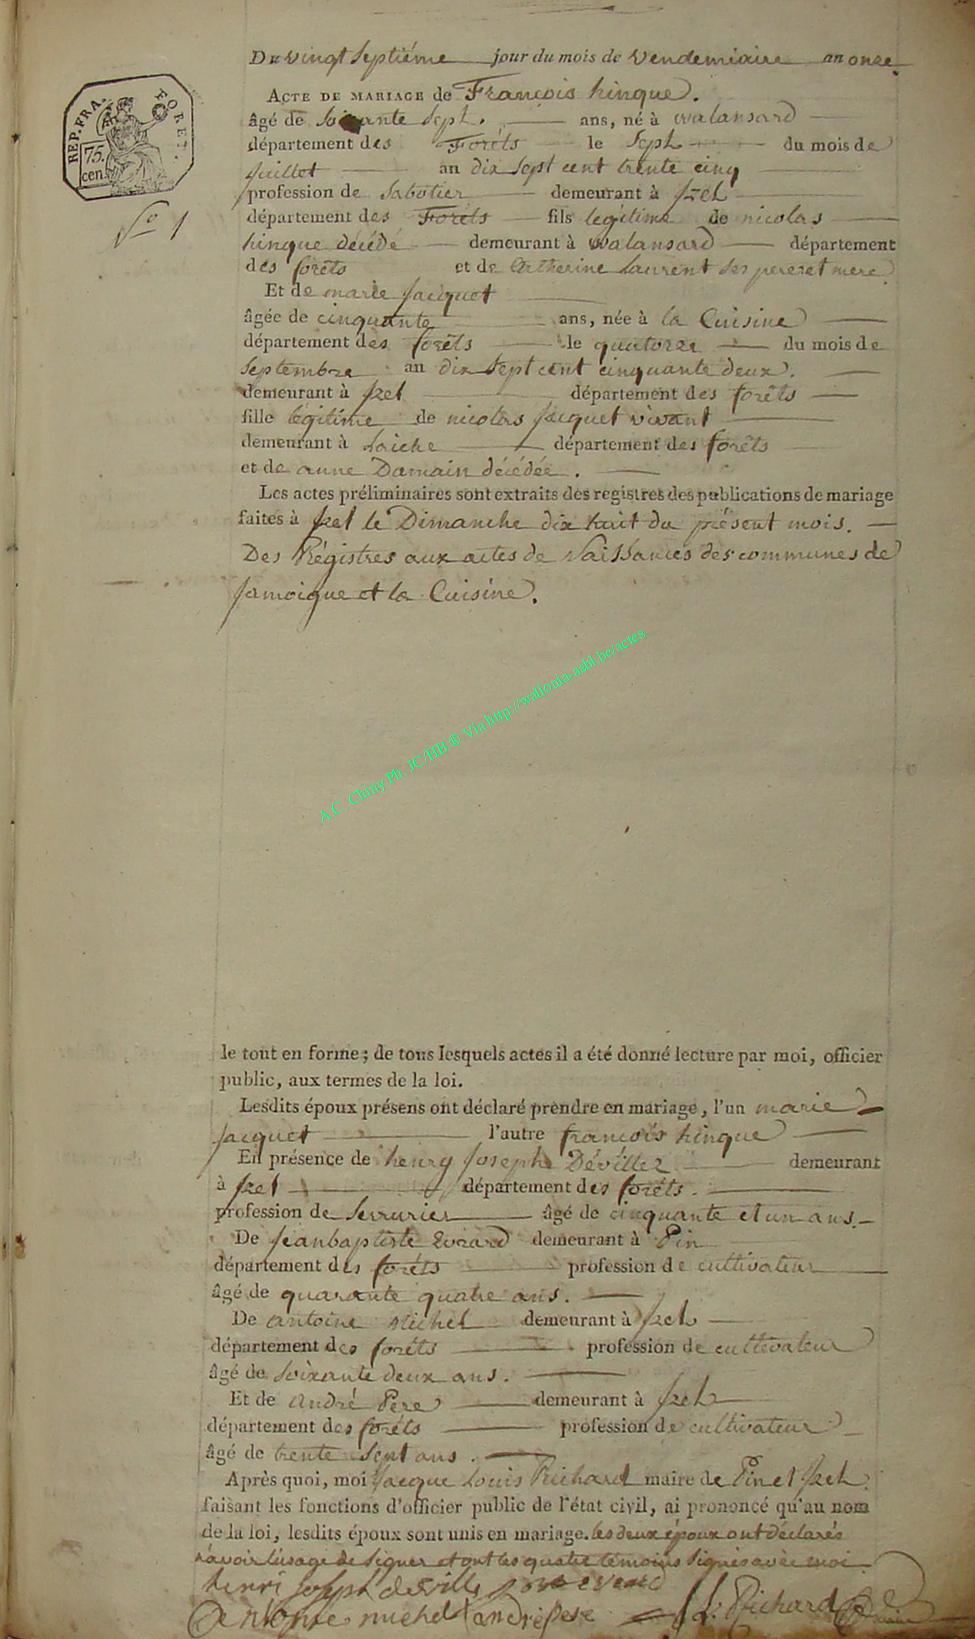 Du vingt septiéme jour du mois de Vendemiaire an onze.
REP. FRA. FORET.
75. cen.
Acte de mariage de François hinque.
âgé de Soixante Sept. ans, né à walansard
département des Forêts le Sept du mois de
Juillet an dix sept cent trente cinq
No 1
profession de Sabotier demeurant à Jzel
département des Forêts fils legitime de nicolas
hinque décédé demeurant à Walansard département
des forêts et de Catherine Laurent Ses pere et mere
Et de marie Jacquet
âgée de cinquante ans, née à la Cuisine
département des forêts le quatorze du mois de
Septembre an dix Sept cent cinquante deux.
demeurant à Jzel département des forêts
fille légitime de nicolas Jacquet vivant
demeurant à Laiche département des forêts
et de anne Damain décédée.
Les actes préliminaires sont extraits des registres des publications de mariage
faites à Jzel le Dimanche dix huit du présent mois.
Des Régistres aux actes de Naissances des communes de
Jamoigue et la Cuisine.
A.C. Chiny Ph. JC/HB ® Via http://wallonia-asbl.be/actes
le tout en forme; de tous lesquels actes il a été donné lecture par moi, officier
public, aux termes de la loi.
Lesdits époux présens ont déclaré prendre en mariage, l'un marie
Jacquet l'autre françois hinque
En présence de henry Joseph Dévillez demeurant
à Jzel département des forêts.
profession de Serrurier âgé de cinquante et un ans.
De Jeanbaptiste Evrard demeurant à Pin
département des forêts profession de cultivateur
âgé de quarante quatre ans.
De antoine Michel demeurant à Jzel
département des forêts profession de cultivateur
âgé de Soixante deux ans.
Et de André Pere demeurant à Jzel
département des forêts profession de cultivateur
âgé de trente Sept ans.
Après quoi, moi Jacque Louis Richard maire de Pin et Jzel
faisant les fonctions d'officier public de l'état civil, ai prononcé qu'au nom
de la loi, lesdits époux sont unis en mariage. les deux époux ont déclarés
navoir l'usage de Signer et ont les quatre témoins Signés avec moi
henri Joseph deville
Antonne michel andré pere J: L: Richard